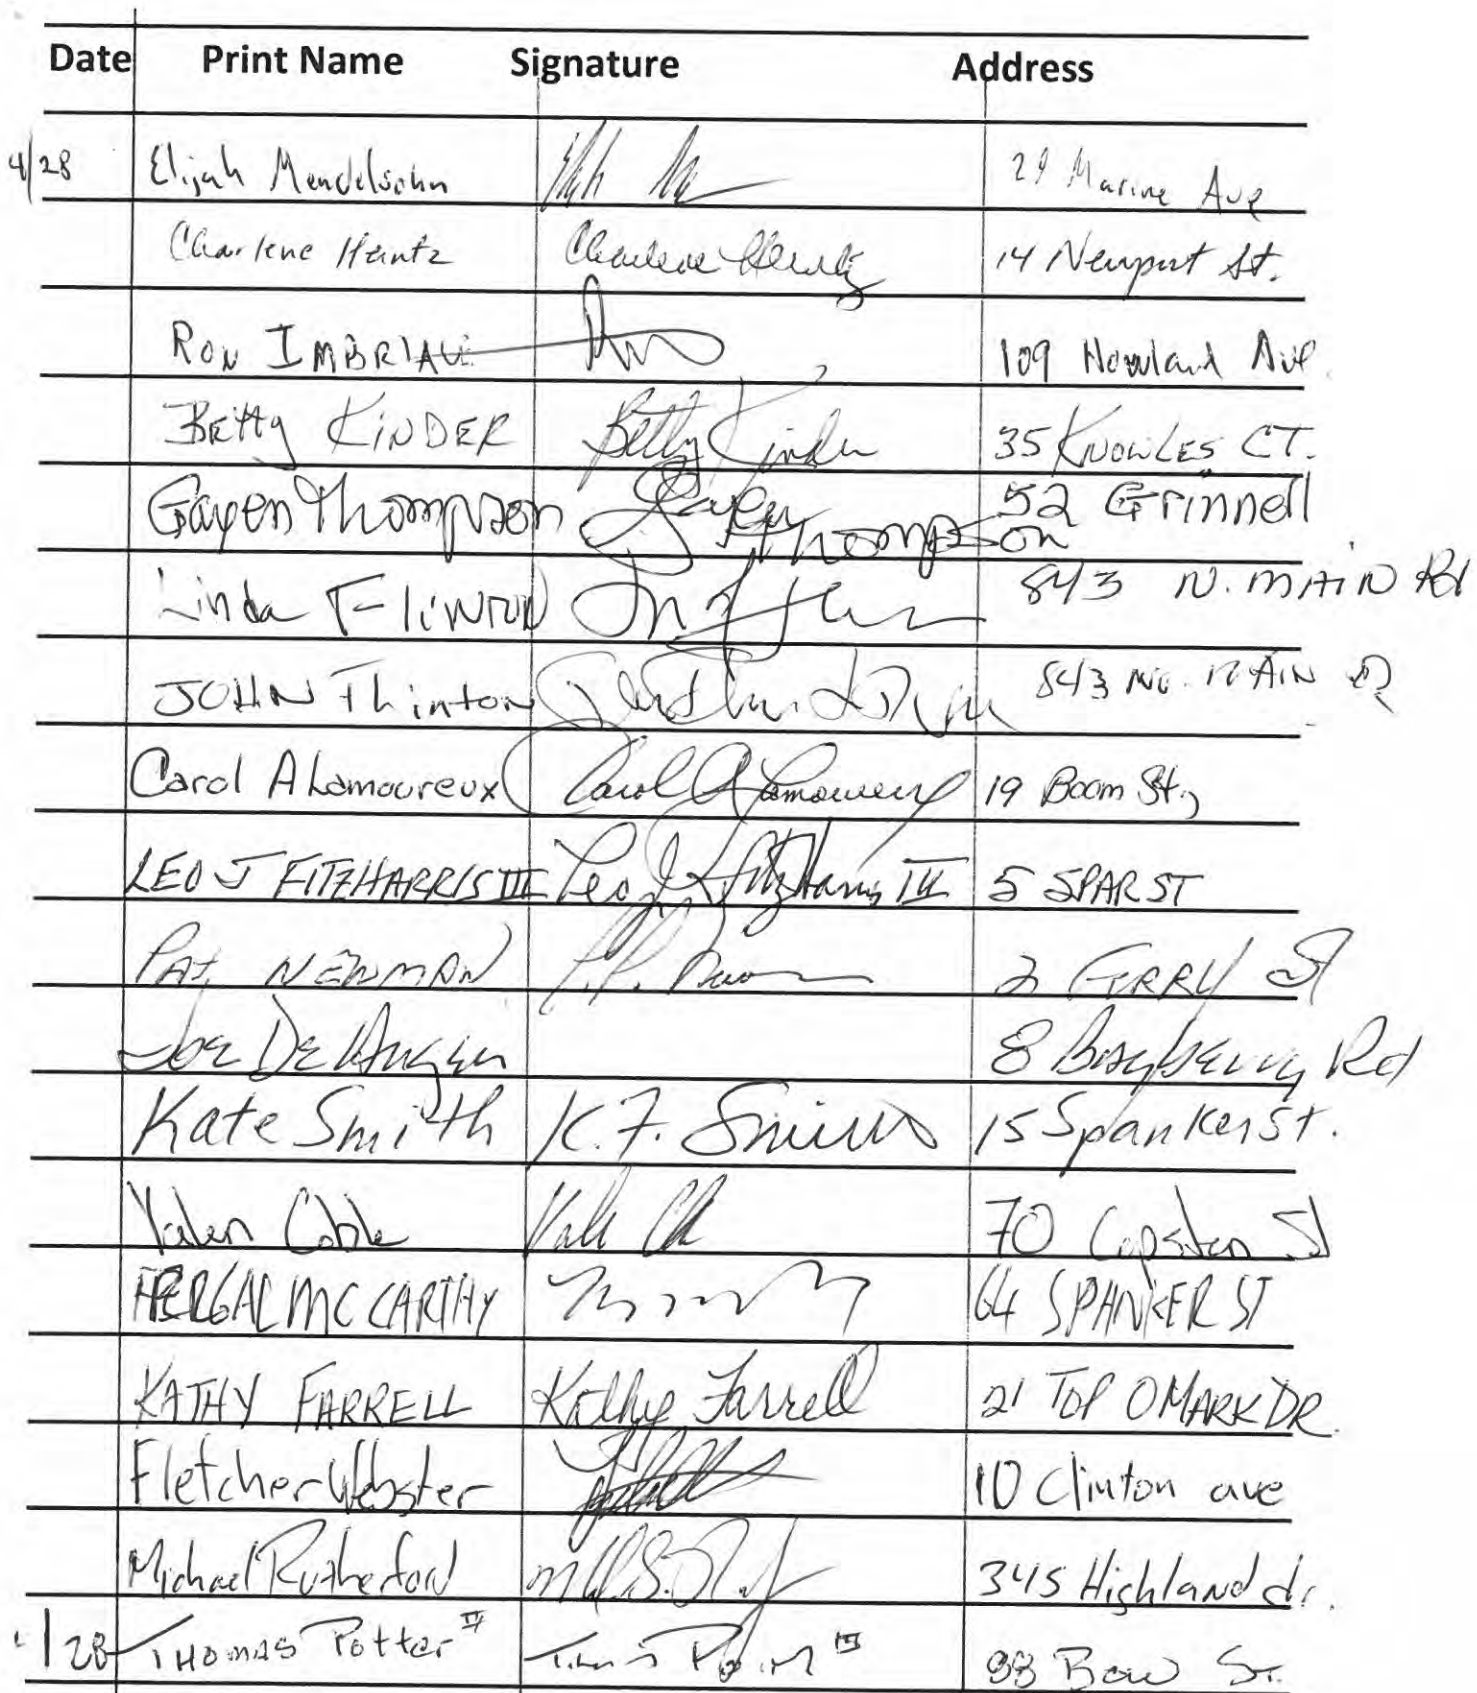 Date Print Name Signature Address
4/28 Elijah Mendelsohn 29 Marine Ave
Charlene Heintz Charlene Heintz 14 Newport St.
RON IMBRIALE 109 Howland Ave.
Betty KINDER Betty Kinder 35 KNOWLES CT.
Gayen Thompson Gayen Thompson 52 Grinnell
Linda FLINTON 843 N. MAIN Rd
JOHN Flinton 843 NO. MAIN
Carol A Lamoureux Carol A Lamoureux 19 Boom St.,
LEO J FITZHARRIS III Leo J Fitzharris III 5 SPAR ST
PAT NEWMAN 2 GERRY St
Joe 8 Bayberry Rd
Kate Smith K.F. Smith 15 Spanker St.
Valen Coble 70 Capstan St
FERGAL MC CARTHY 64 SPANKER ST
KATHY FARRELL Kathy Farrell 21 TOP O MARK DR.
Fletcher Webster 10 Clinton ave
Michael Rutherford 345 Highland dr.
/28 THOMAS Potter 88 Bow St.